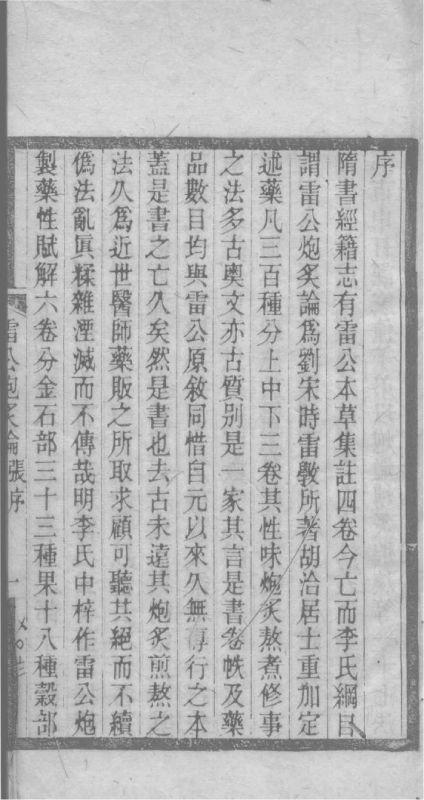 序
隋書經籍志有雷公本草集註四卷今亡而李氏綱目
謂雷公炮炙論爲劉宋時雷斆所著胡洽居士重加定
述藥凡三百種分上中下三卷其性味炮炙熬煮修事
之法多古奧文亦古質别是一家其言是書卷帙及藥
品數目均與雷公原敘同惜自元以來久無專行之本
蓋是書之亡久矣然是書也去古未遠其炮炙煎熬之
法久爲近世醫師藥販之所取求顧可聽其絕而不續
僞法亂眞糅雜湮滅而不傳哉明李氏中梓作雷公炮
製藥性賦解六卷分金石部三十三種果十八種穀部
雷公炮炙論張序
一